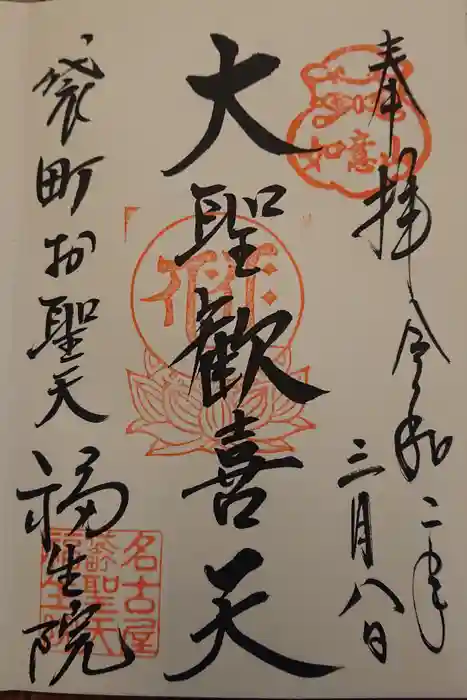 奉拝
如意山
令和二年
三月八日
大聖歓喜天
袋町お聖天
福生院
名古屋
袋町聖天
福生院